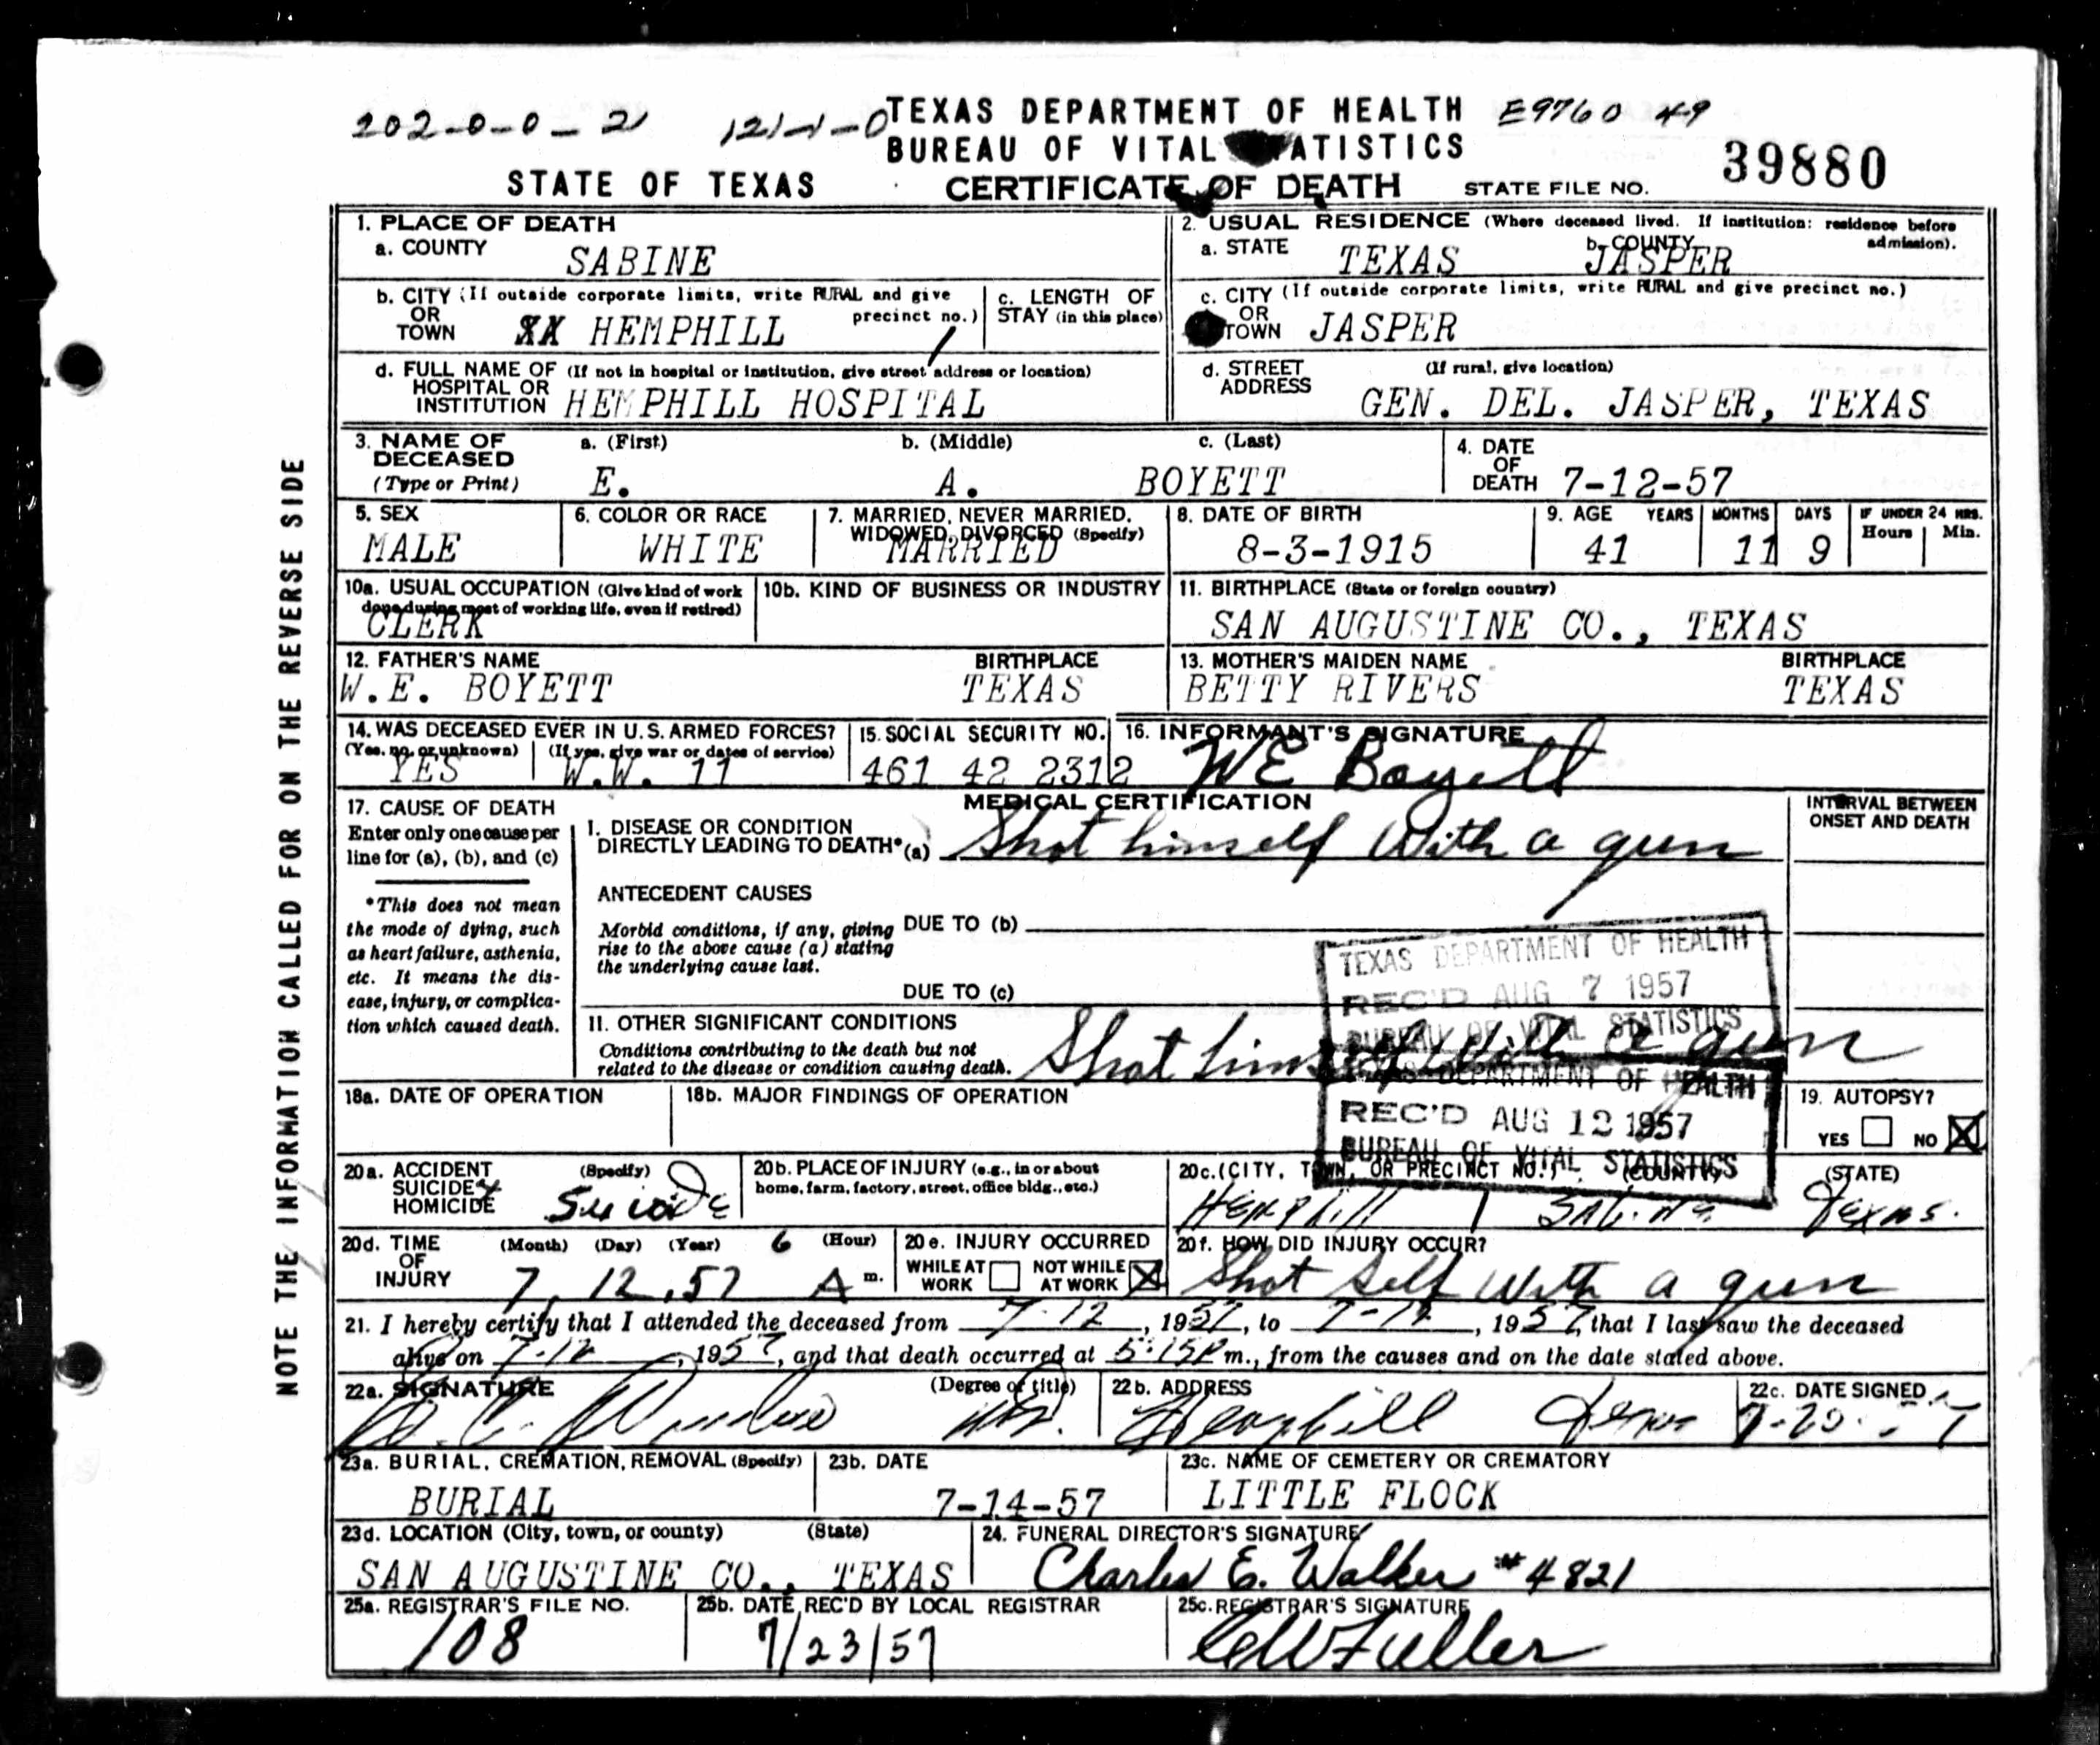 202-0-0-21 121-1-0 TEXAS DEPARTMENT OF HEALTH E9760 49
BUREAU OF VITAL STATISTICS
39880
STATE OF TEXAS CERTIFICATE OF DEATH STATE FILE NO.
1. PLACE OF DEATH
a. COUNTY SABINE
2. USUAL RESIDENCE (Where deceased lived. If institution: residence before admission).
a. STATE TEXAS b. COUNTY JASPER
b. CITY (If outside corporate limits, write RURAL and give precinct no.)
OR
TOWN XX HEMPHILL 1
c. LENGTH OF
STAY (in this place)
c. CITY (If outside corporate limits, write RURAL and give precinct no.)
OR
TOWN JASPER
d. FULL NAME OF (If not in hospital or institution, give street address or location)
HOSPITAL OR
INSTITUTION HEMPHILL HOSPITAL
d. STREET (If rural, give location)
ADDRESS GEN. DEL. JASPER, TEXAS
3. NAME OF a. (First) b. (Middle) c. (Last)
DECEASED
(Type or Print) E. A. BOYETT
4. DATE
OF
DEATH 7-12-57
5. SEX
MALE
6. COLOR OR RACE
WHITE
7. MARRIED, NEVER MARRIED,
WIDOWED, DIVORCED (Specify)
MARRIED
8. DATE OF BIRTH
8-3-1915
9. AGE YEARS MONTHS DAYS IF UNDER 24 HRS.
Hours Min.
41 11 9
10a. USUAL OCCUPATION (Give kind of work
done during most of working life, even if retired)
CLERK
10b. KIND OF BUSINESS OR INDUSTRY
11. BIRTHPLACE (State or foreign country)
SAN AUGUSTINE CO., TEXAS
12. FATHER'S NAME BIRTHPLACE
W.E. BOYETT TEXAS
13. MOTHER'S MAIDEN NAME BIRTHPLACE
BETTY RIVERS TEXAS
14. WAS DECEASED EVER IN U.S. ARMED FORCES?
(Yes, no, or unknown) (If yes, give war or dates of service)
YES W.W. 11
15. SOCIAL SECURITY NO.
461 42 2312
16. INFORMANT'S SIGNATURE
WE Boyett
17. CAUSE OF DEATH
Enter only one cause per
line for (a), (b), and (c)
*This does not mean
the mode of dying, such
as heart failure, asthenia,
etc. It means the dis-
ease, injury, or complica-
tion which caused death.
MEDICAL CERTIFICATION
INTERVAL BETWEEN
ONSET AND DEATH
I. DISEASE OR CONDITION
DIRECTLY LEADING TO DEATH* (a) Shot himself With a gun
ANTECEDENT CAUSES
Morbid conditions, if any, giving DUE TO (b)
rise to the above cause (a) stating
the underlying cause last.
DUE TO (c)
TEXAS DEPARTMENT OF HEALTH
REC'D AUG 7 1957
BUREAU OF VITAL STATISTICS
II. OTHER SIGNIFICANT CONDITIONS
Conditions contributing to the death but not
related to the disease or condition causing death. Shot himself With a gun
TEXAS DEPARTMENT OF HEALTH
REC'D AUG 12 1957
BUREAU OF VITAL STATISTICS
18a. DATE OF OPERATION
18b. MAJOR FINDINGS OF OPERATION
19. AUTOPSY?
YES NO X
20a. ACCIDENT (Specify)
SUICIDE
HOMICIDE Suicide
20b. PLACE OF INJURY (e.g., in or about
home, farm, factory, street, office bldg., etc.)
20c. (CITY, TOWN, OR PRECINCT NO.) (COUNTY) (STATE)
Hemphill Sabine Texas.
20d. TIME (Month) (Day) (Year) 6 (Hour)
OF
INJURY 7, 12, 57 A m.
20e. INJURY OCCURRED
WHILE AT WORK NOT WHILE AT WORK X
20f. HOW DID INJURY OCCUR?
Shot Self With a gun
21. I hereby certify that I attended the deceased from 7-12, 1957, to 7-12, 1957, that I last saw the deceased
alive on 7-12, 1957, and that death occurred at 5:15P m., from the causes and on the date stated above.
22a. SIGNATURE (Degree or title)
22b. ADDRESS
Hemphill Texas
22c. DATE SIGNED
23a. BURIAL, CREMATION, REMOVAL (Specify)
BURIAL
23b. DATE
7-14-57
23c. NAME OF CEMETERY OR CREMATORY
LITTLE FLOCK
23d. LOCATION (City, town, or county) (State)
SAN AUGUSTINE CO., TEXAS
24. FUNERAL DIRECTOR'S SIGNATURE
Charles E. Walker #4821
25a. REGISTRAR'S FILE NO.
108
25b. DATE REC'D BY LOCAL REGISTRAR
7/23/57
25c. REGISTRAR'S SIGNATURE
Fuller
NOTE THE INFORMATION CALLED FOR ON THE REVERSE SIDE